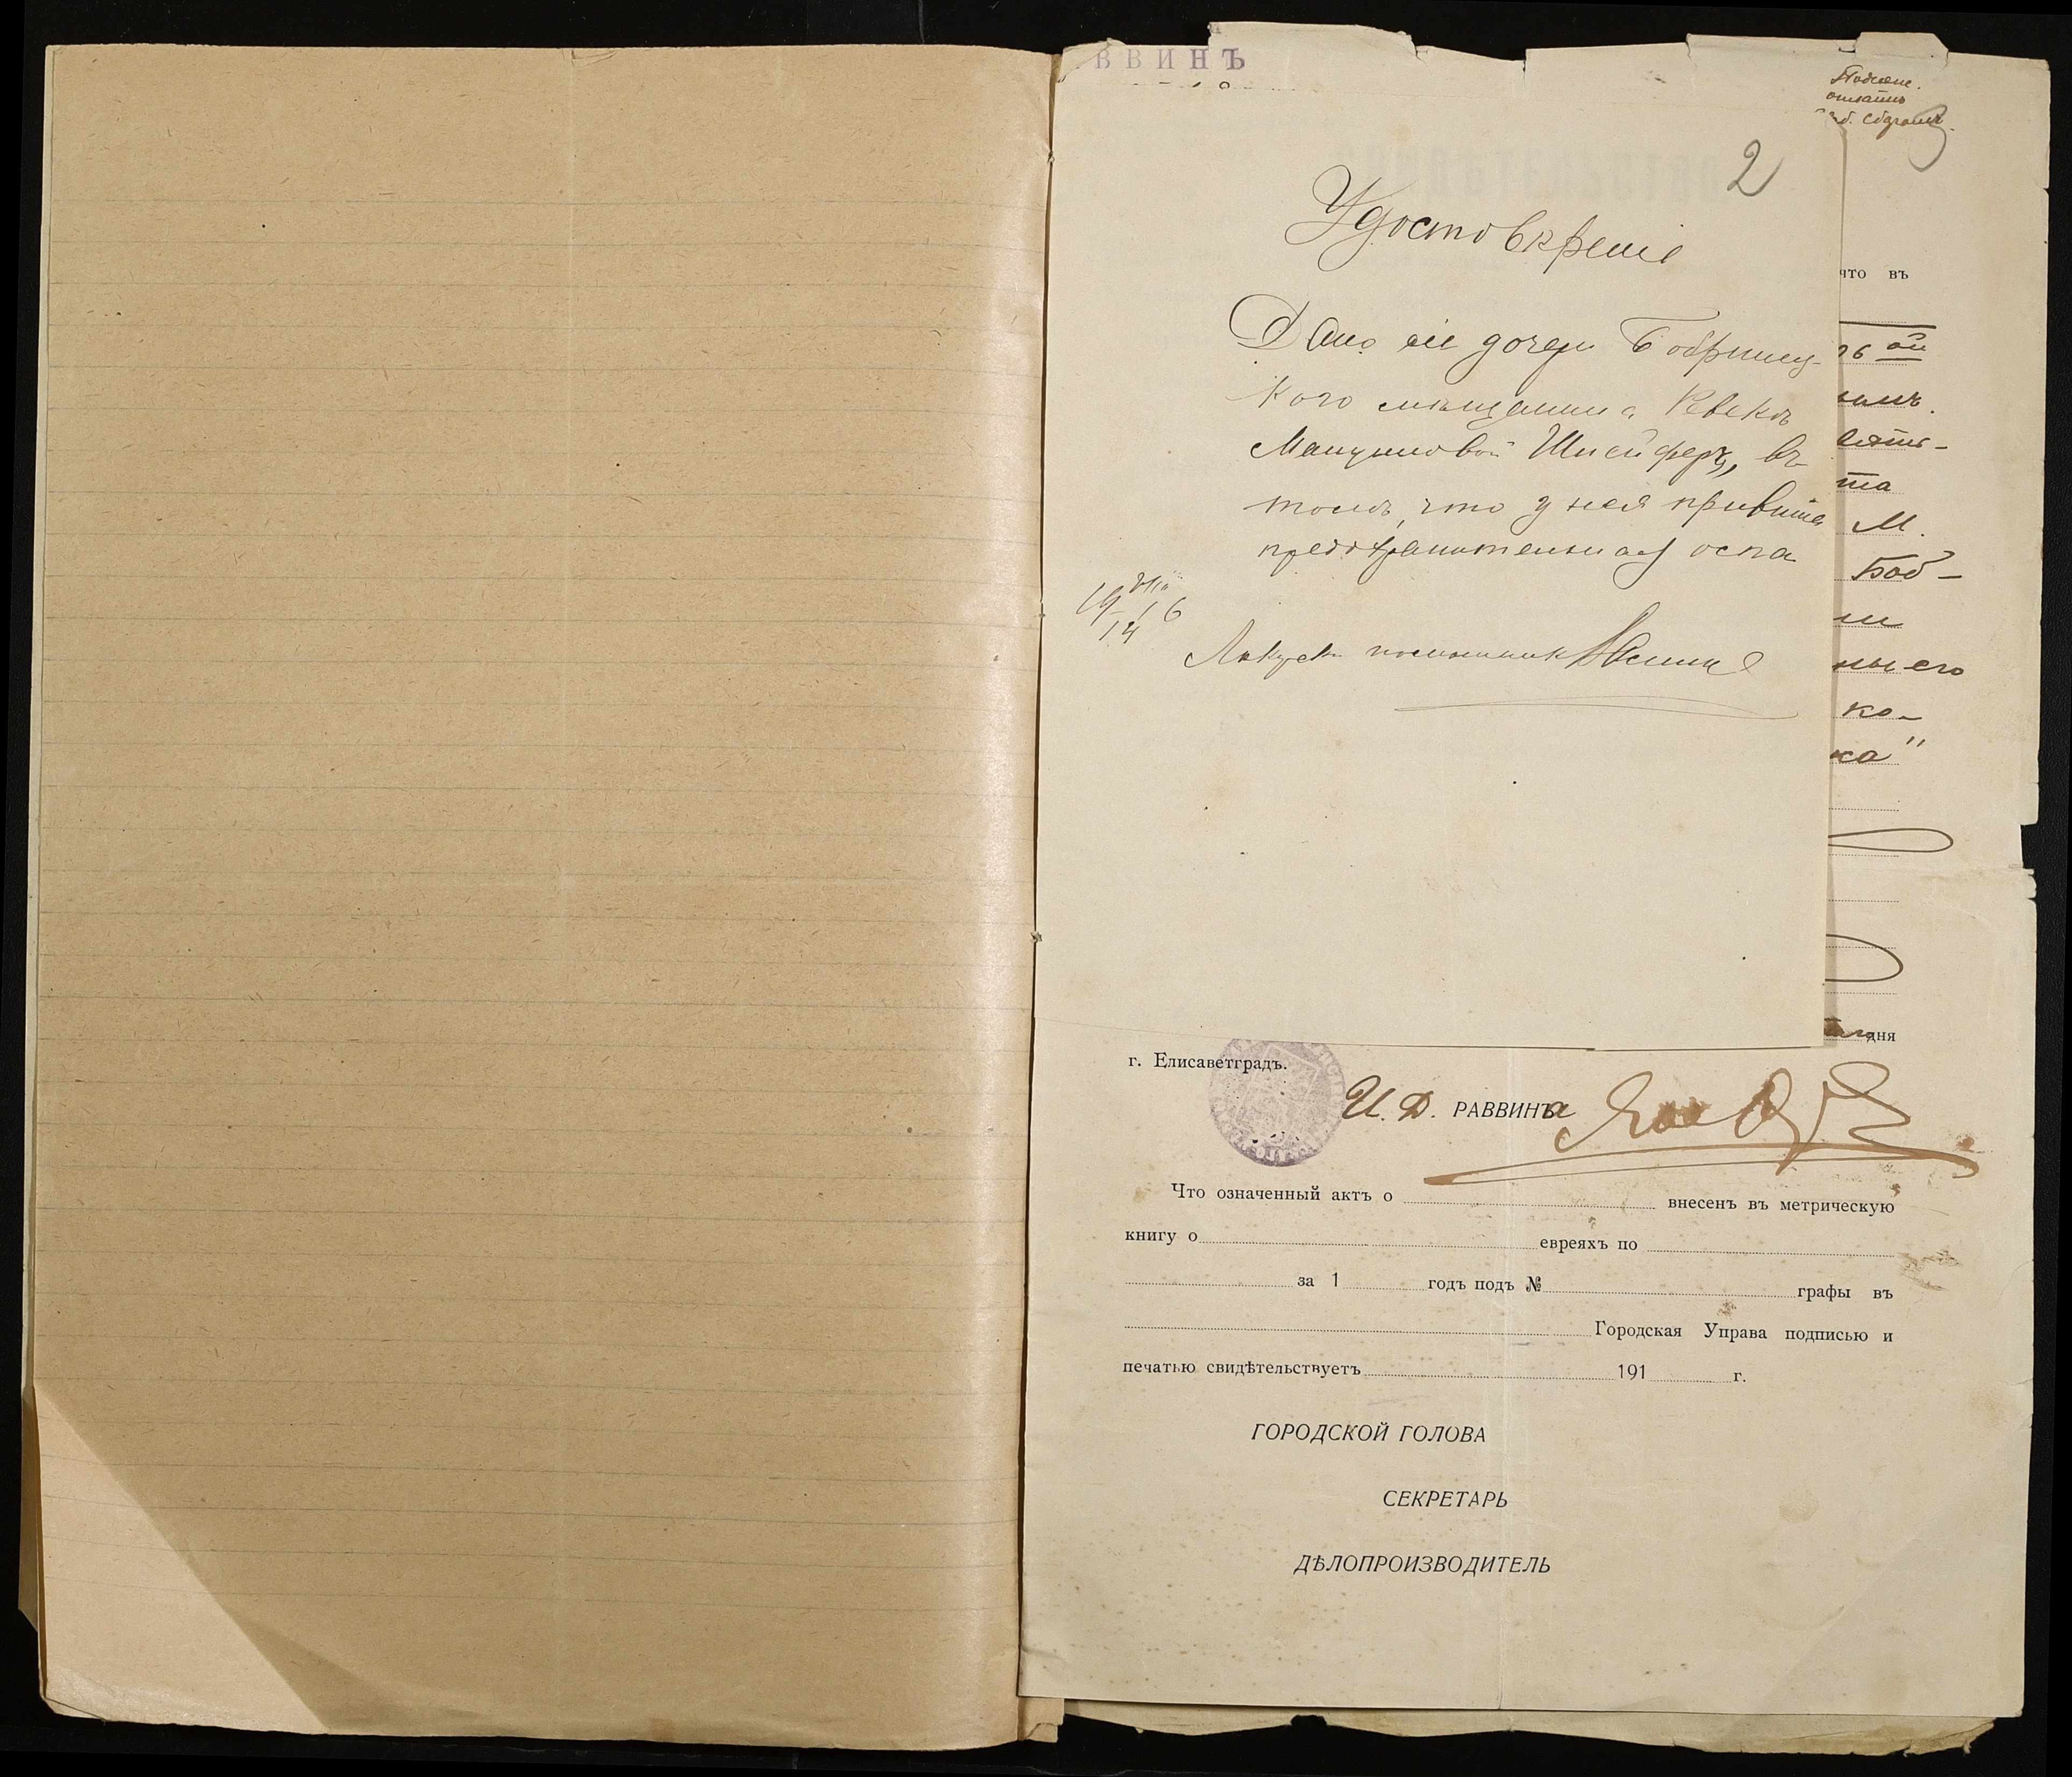 ВВИНЪ
Подлеж.
2
Удостовѣреніе
что въ
Дано сіе дочери Бобринец-
кого мѣщанина Ревекѣ
Манушовой Шнейферъ, въ
томъ, что у нея привита
та
М.
предохранительная оспа
Боб-
19 VIII 16
14
Лекарск. помощникъ
ны его
ко-
ка"
дня
г. Елисаветградъ.
И. Д. РАВВИНа
Что означенный актъ о внесенъ въ метрическую
книгу о евреяхъ по
за 1 годъ подъ № графы въ
Городская Управа подписью и
печатью свидѣтельствуетъ 191 г.
ГОРОДСКОЙ ГОЛОВА
СЕКРЕТАРЬ
ДѢЛОПРОИЗВОДИТЕЛЬ